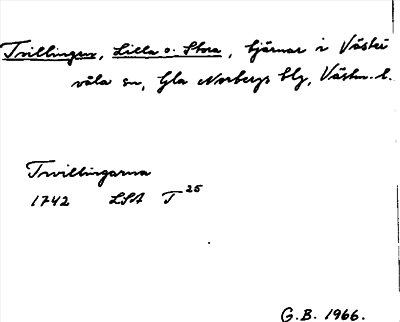 Tvillingen, Lilla o. Stora, tjärnar i Väster
våla sn, Gla Norbergs blg, Västm. l.
Twillingarna
1742 LSA T 25
G.B. 1966.